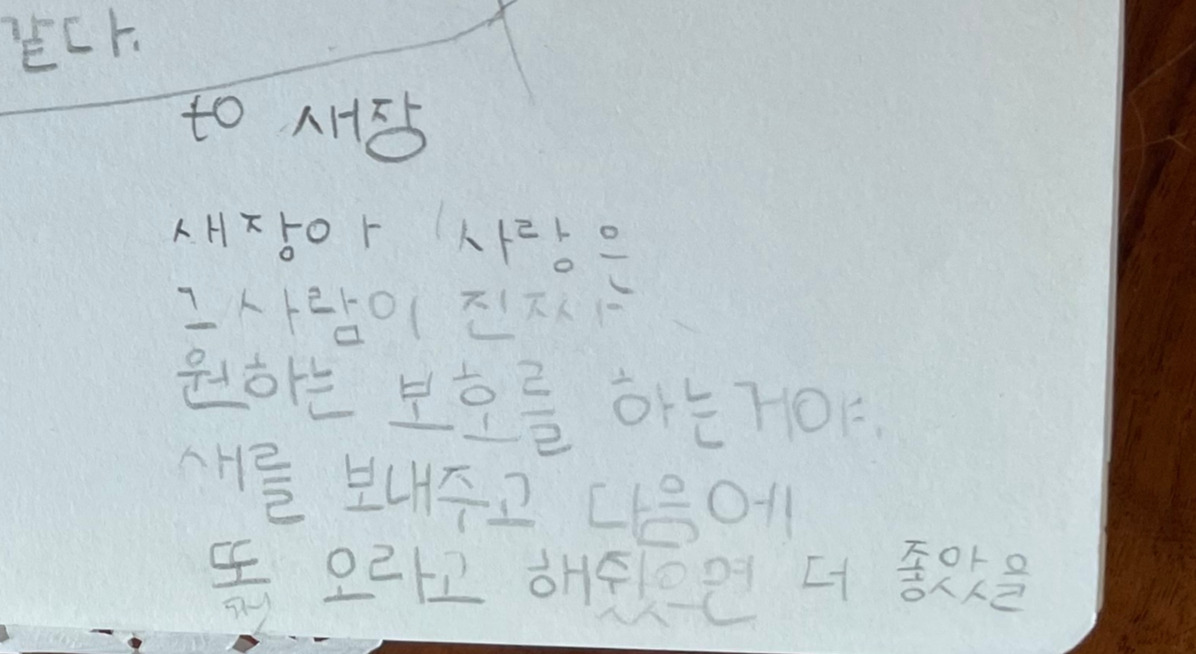 같다.
to 새장
새장아 사랑은
그사람이 진짜
원하는 보호를 하는거야.
새를 보내주고 다음에
또 오라고 해줬으면 더 좋았을